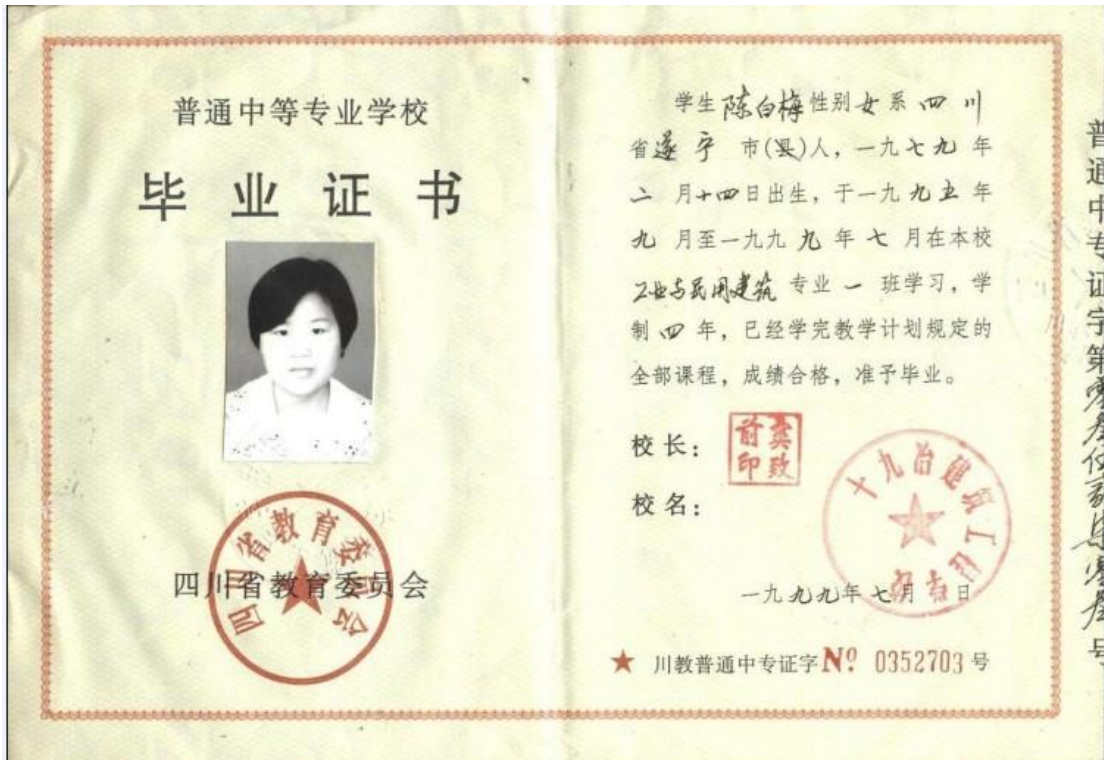 普通中等专业学校
毕业证书
四川省教育委员会
四川省教育委员会
学生陈白梅性别女系四川
省遂宁市(县)人，一九七九年
二月十四日出生，于一九九五年
九月至一九九九年七月在本校
工业与民用建筑专业一班学习，学
制四年，已经学完教学计划规定的
全部课程，成绩合格，准予毕业。
校长：
校名：
十九冶建筑工程
一九九九年七月日
★ 川教普通中专证字 Nº 0352703 号
普通中专证字第
号